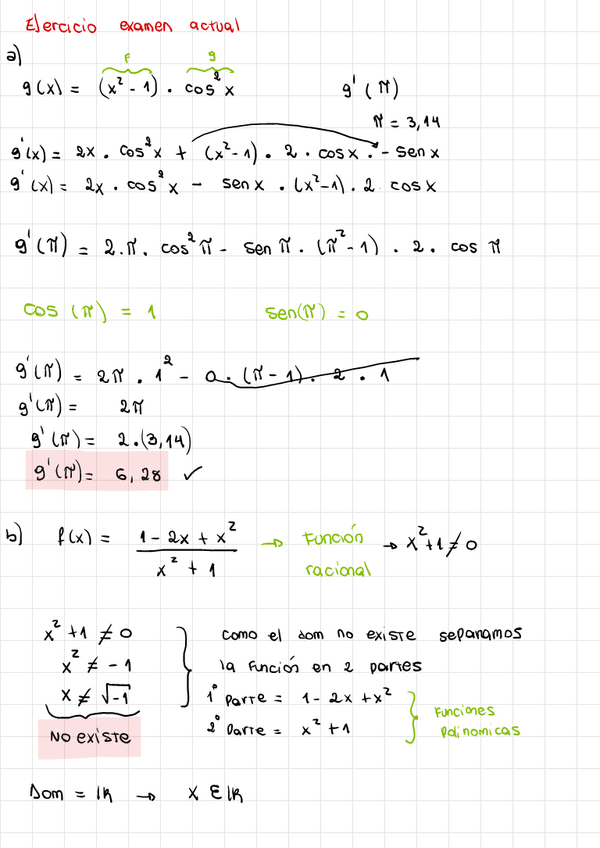 Ejercicio examen actual
a)
f g
g(x) = (x² - 1) · cos²x g'(π)
π = 3,14
g'(x) = 2x · cos²x + (x²-1) · 2 · cosx · - senx
g'(x) = 2x · cos²x - senx · (x²-1) · 2 cosx
g'(π) = 2·π · cos²π - senπ · (π²-1) · 2 · cos π
cos (π) = 1 sen(π) = 0
g'(π) = 2π · 1² - 0 · (π-1) · 2 · 1
g'(π) = 2π
g'(π) = 2·(3,14)
g'(π) = 6,28 ✓
b) f(x) = (1 - 2x + x²)/(x² + 1) → Función → x²+1 ≠ 0
racional
x² +1 ≠ 0 como el dom no existe separamos
x² ≠ -1 la función en 2 partes
x ≠ √-1 1° parte = 1 - 2x + x² Funciones
No existe 2° parte = x² + 1 polinomicas
Dom = ℝ → x ∈ ℝ